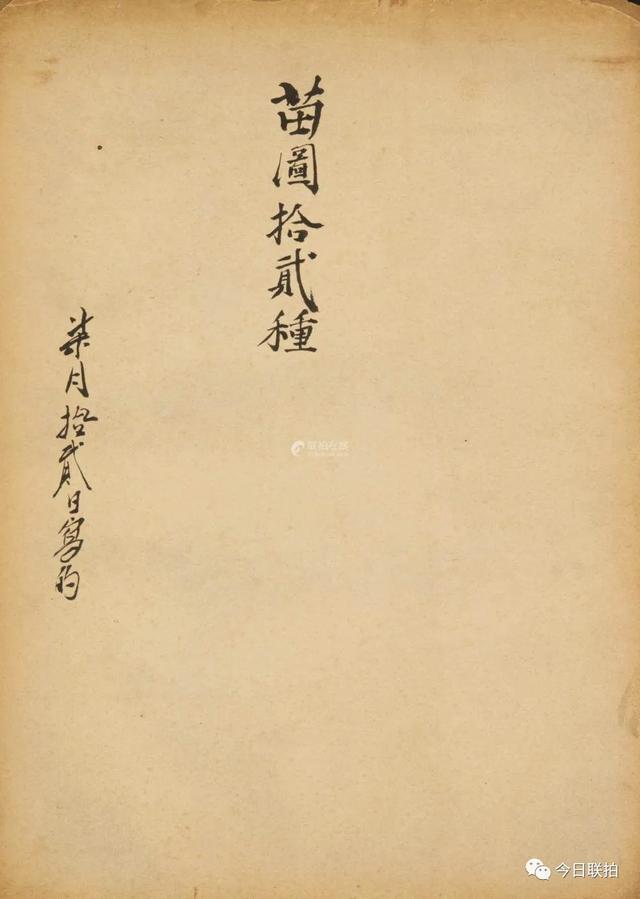 苗圖拾貳種
柒月拾貳日寫的
联拍在线
今日联拍